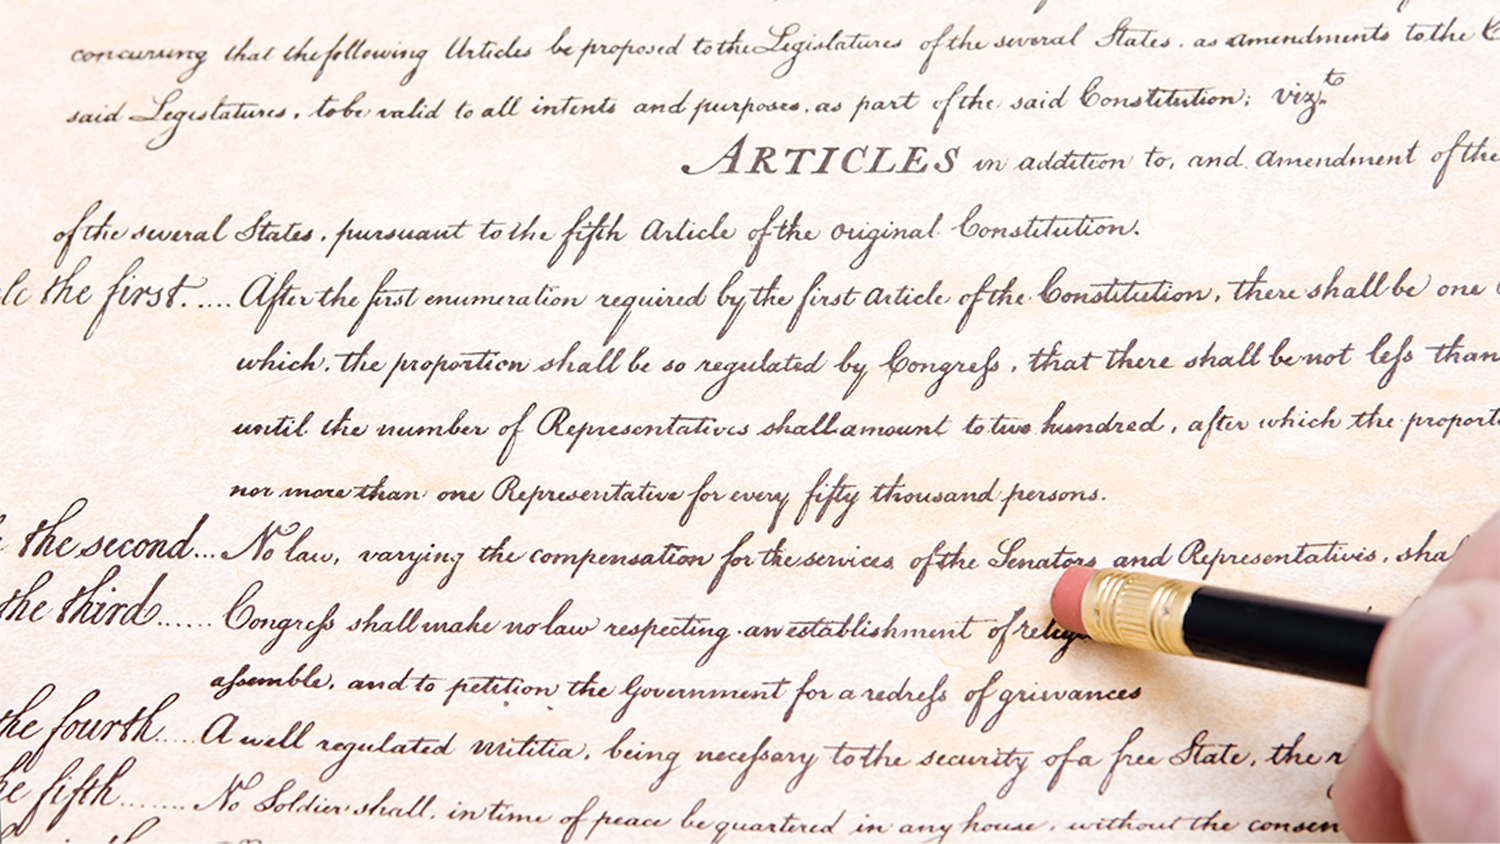 concurring that the following Articles be proposed to the Legislatures of the several States, as amendments to the
said Legislatures, to be valid to all intents and purposes, as part of the said Constitution; vizt.
ARTICLES in addition to, and amendment of the
of the several States, pursuant to the fifth Article of the original Constitution.
the first..... After the first enumeration required by the first Article of the Constitution, there shall be one
which, the proportion shall be so regulated by Congreſs, that there shall be not leſs than
until the number of Representatives shall amount to two hundred, after which the
nor more than one Representative for every fifty thousand persons.
the second... No law, varying the compensation for the services of the Senators and Representatives,
the third...... Congreſs shall make no law respecting an establishment of
aſsemble, and to petition the Government for a redreſs of grievances
the fourth.... A well regulated Militia, being neceſsary to the security of a free State, the
fifth....... No Soldier shall, in time of peace be quartered in any house, without the